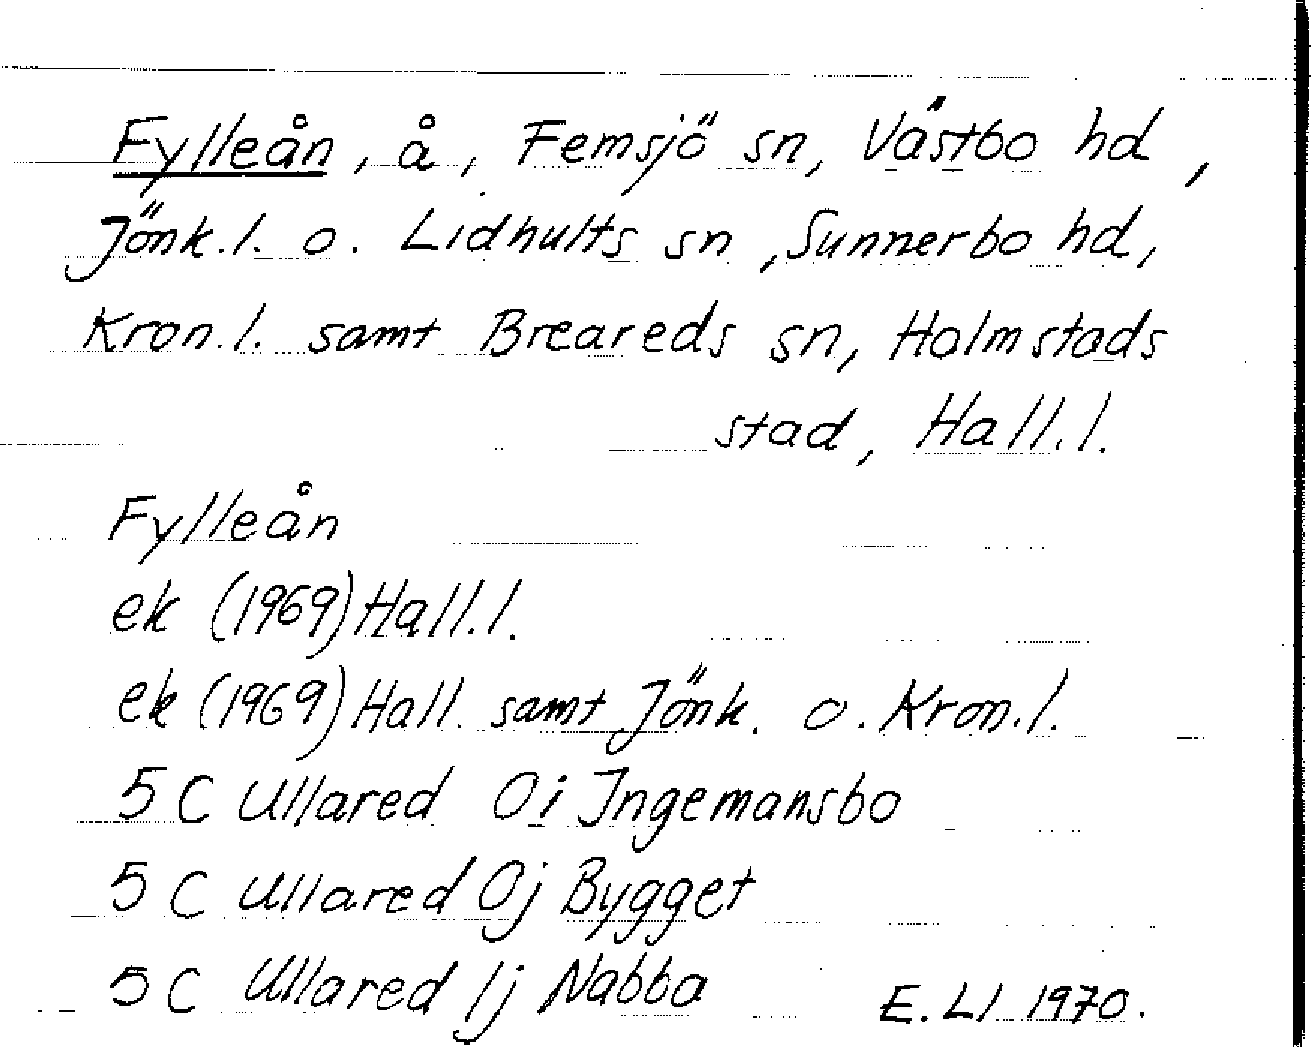 Fylleån, å, Femsjö sn, Västbo hd,
Jönk.l. o. Lidhults sn, Sunnerbo hd,
Kron.l. samt Breareds sn, Holmstads
stad, Hall.l.
Fylleån
ek (1969) Hall.l.
ek (1969) Hall. samt Jönk. o. Kron.l.
5 C Ullared 0i Ingemansbo
5 C Ullared 0j Bygget
5 C Ullared 1j Nabba
E. Ll 1970.